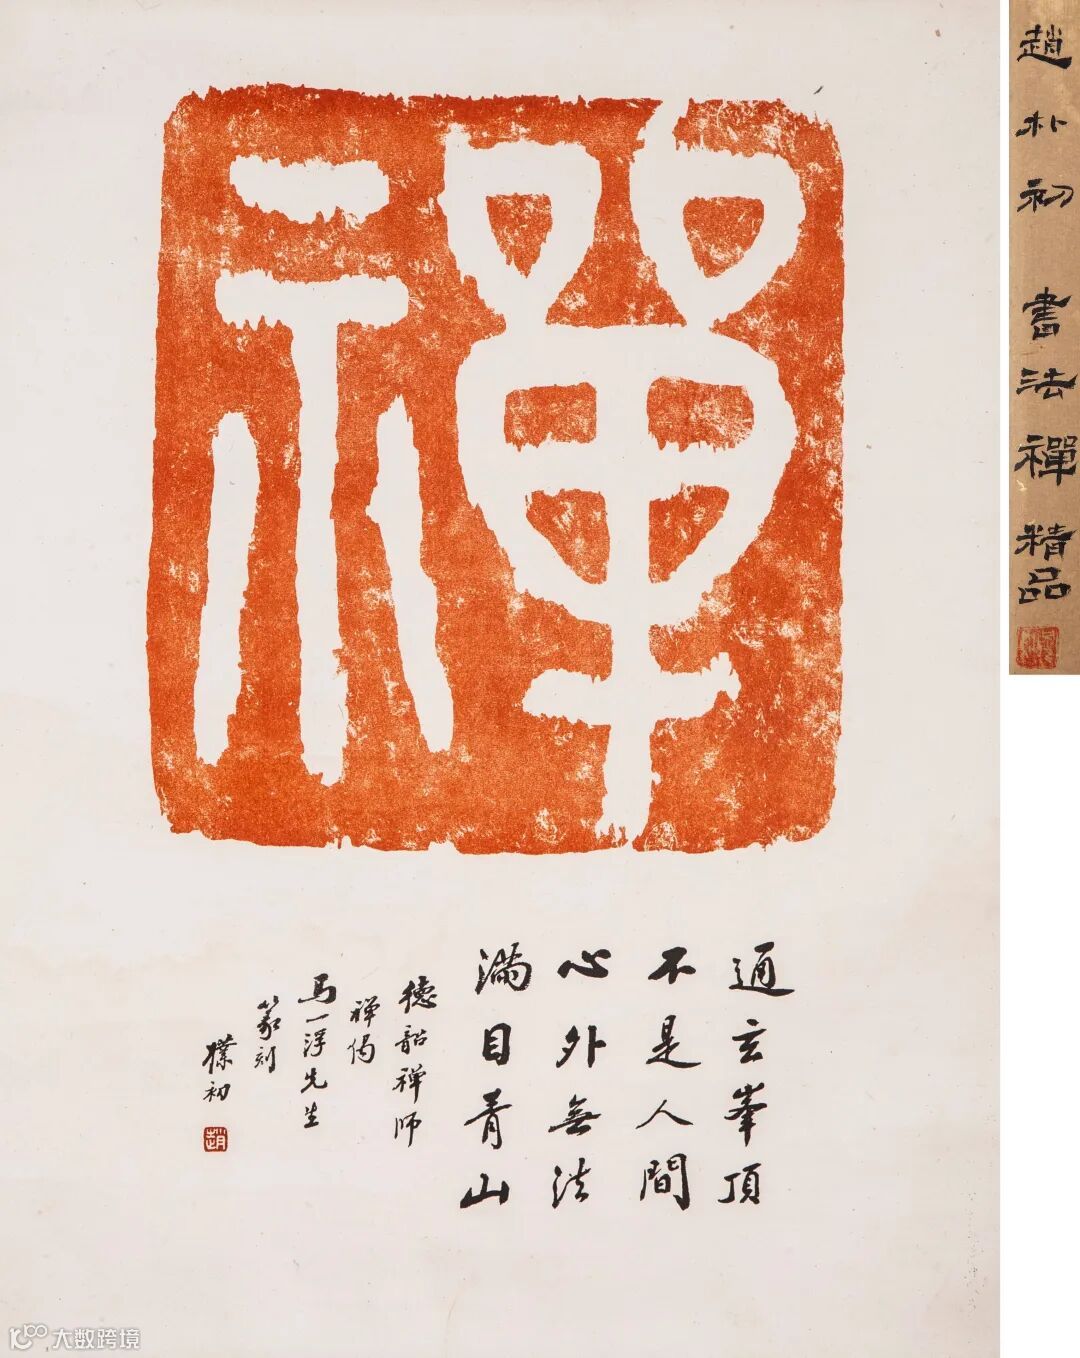 禪
通玄峯頂
不是人間
心外無法
滿目青山
德韶禅师
禅偈
馬一浮先生
篆刻
樸初
趙
趙朴初書法禪精品
大数跨境